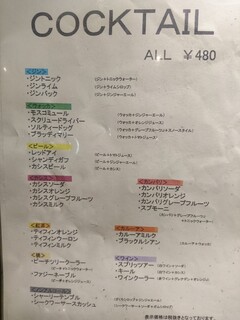 COCKTAIL
ALL ¥480
<ジン>
・ジントニック (ジン+トニックウォーター)
・ジンライム (ジン+ライムシロップ)
・ジンバック (ジン+ジンジャーエール)
<ウォッカ>
・モスコミュール (ウォッカ+ジンジャーエール)
・スクリュードライバー (ウォッカ+オレンジジュース)
・ソルティードッグ (ウォッカ+グレープフルーツ+スノースタイル)
・ブラッディマリー (ウォッカ+トマトジュース)
<ビール>
・レッドアイ (ビール+トマトジュース)
・シャンディガフ (ビール+ジンジャーエール)
・カシスビール (ビール+カシス)
・カシスソーダ
・カシスオレンジ
・カシスグレープフルーツ
・カシスミルク
<カンパリ>
・カンパリソーダ
・カンパリオレンジ
・カンパリグレープフルーツ
・スプモーニ
<紅茶>
・ティフィンオレンジ
・ティフィンウーロン
・ティフィンミルク
<カルーア>
・カルーアミルク
・ブラックルシアン
<桃>
・ピーチツリークーラー
・ファジーネーブル
<ワイン>
・スプリッツァー
・キール
・ワインクーラー
<ノンアルコール>
・シャーリーテンプル
・シークワーサースカッシュ
表示価格は税抜きとなっております。